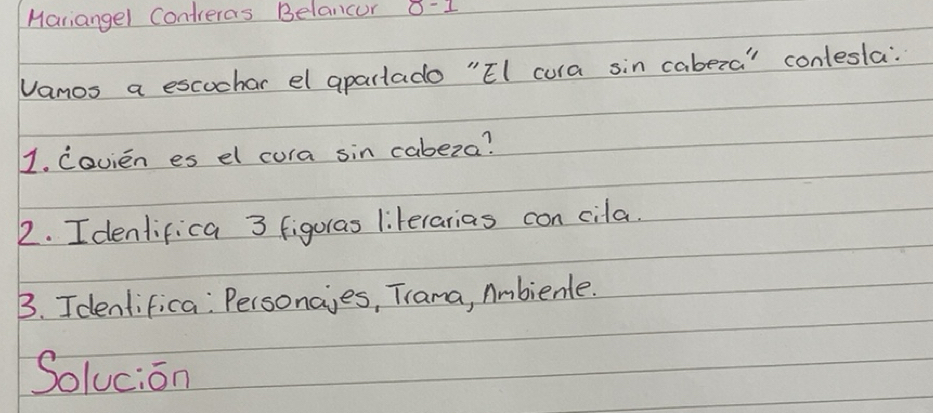 Mariangel Contreras Betancur 8-1
Vamos a escuchar el apartado "El cura sin cabeza" contesta:
1. ¿Quién es el cura sin cabeza?
2. Identifica 3 figuras literarias con cita.
3. Identifica: Personajes, Trama, Ambiente.
Solución